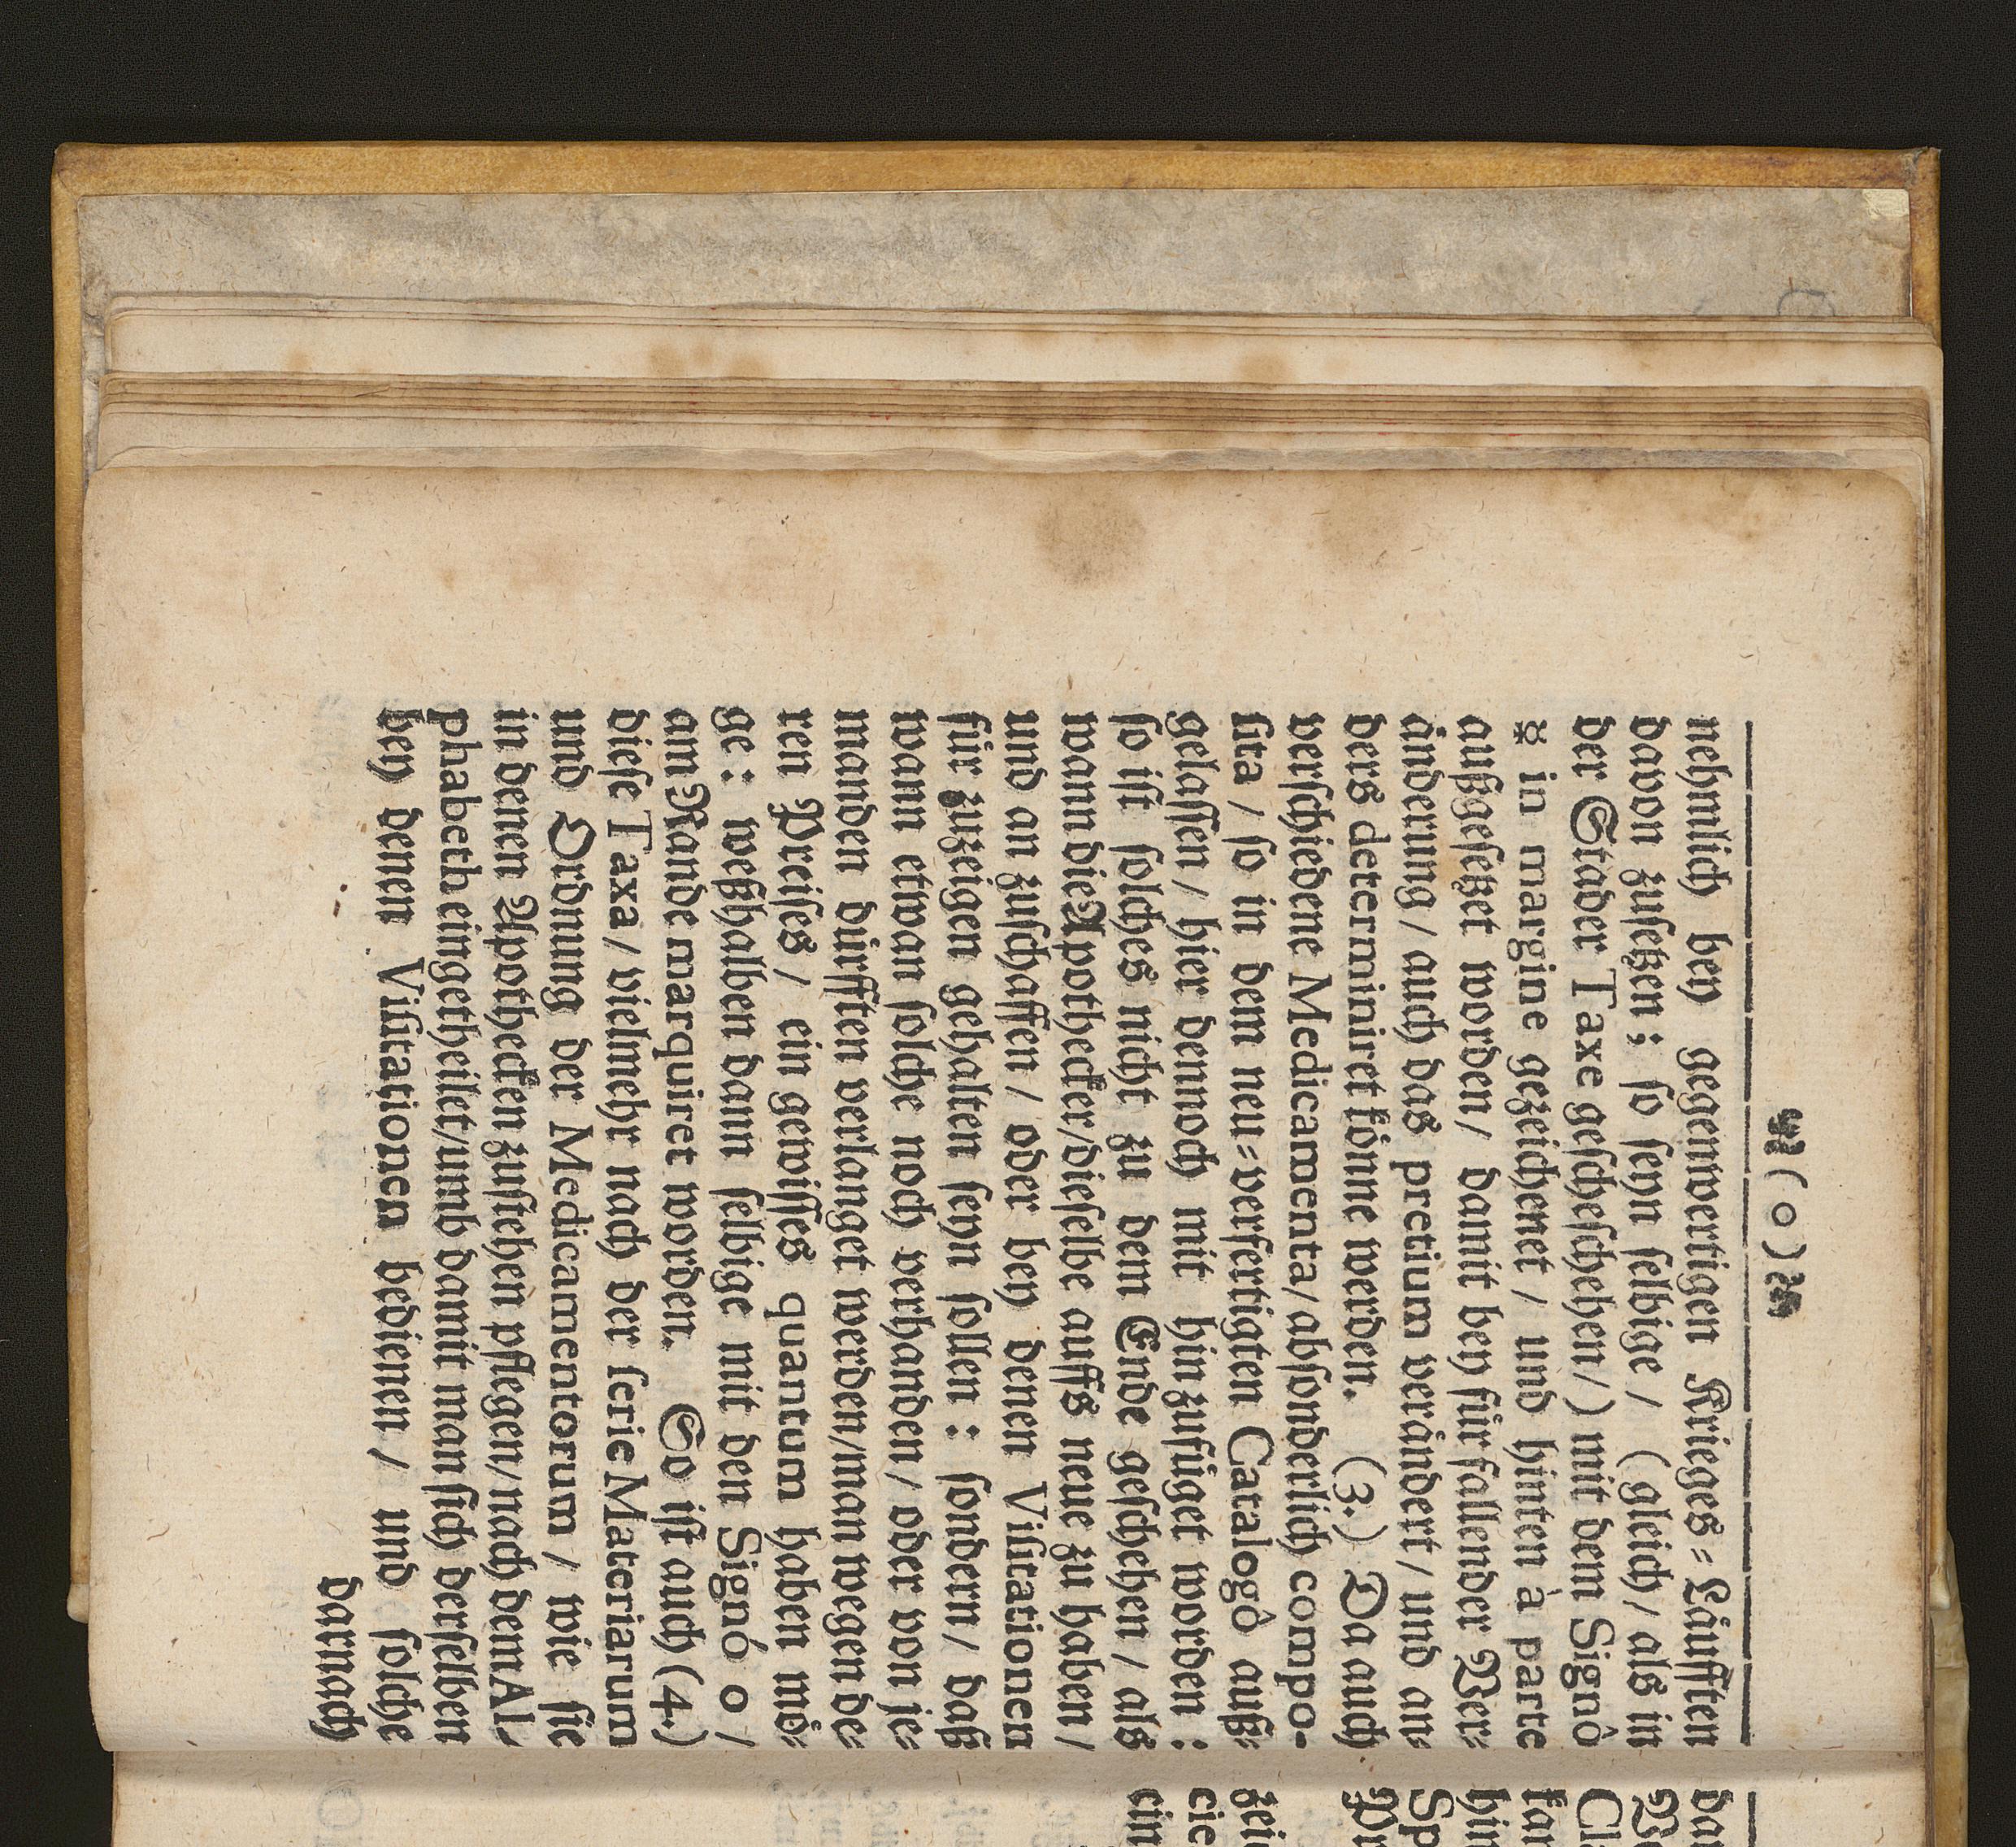 ( o )
nehmlich bey gegenwertigen Krieges = Läufften
davon zusetzen ; so seyn selbige / ( gleich / als in
der Stader Taxe geschehen / ) mit dem Signô
in margine gezeichnet / und hinten à parte
außgesetzet worden / damit bey fürfallender Ver=
änderung / auch das pretium verändert / und an=
ders determiniret könne werden. (3.) Da auch
verschiedene Medicamenta / absonderlich compo-
sita / so in dem neu=verfertigten Catalogô auß=
gelassen / hier dennoch mit hinzufüget worden :
so ist solches nicht zu dem Ende geschehen / als
wann die Apothecker / dieselbe auffs neue zu haben /
und an zuschaffen / oder bey denen Visitationen
für zuzeigen gehalten seyn sollen : sondern / daß
wann etwan solche noch verhanden / oder von je=
manden dürfften verlanget werden / man wegen de=
ren Preises / ein gewisses quantum haben mö=
ge : weßhalben dann selbige mit den Signó o /
am Rande marquiret worden. So ist auch (4.)
diese Taxa / vielmehr nach der serie Materiarum
und Ordnung der Medicamentorum / wie sie
in denen Apothecken zustehen pflegen / nach dem Al-
phabeth eingetheilet / umb damit man sich derselben
bey denen Visitationen bedienen / und solche
darnach
dar
Cla
kan
hin
Sp
zei
cie
ein